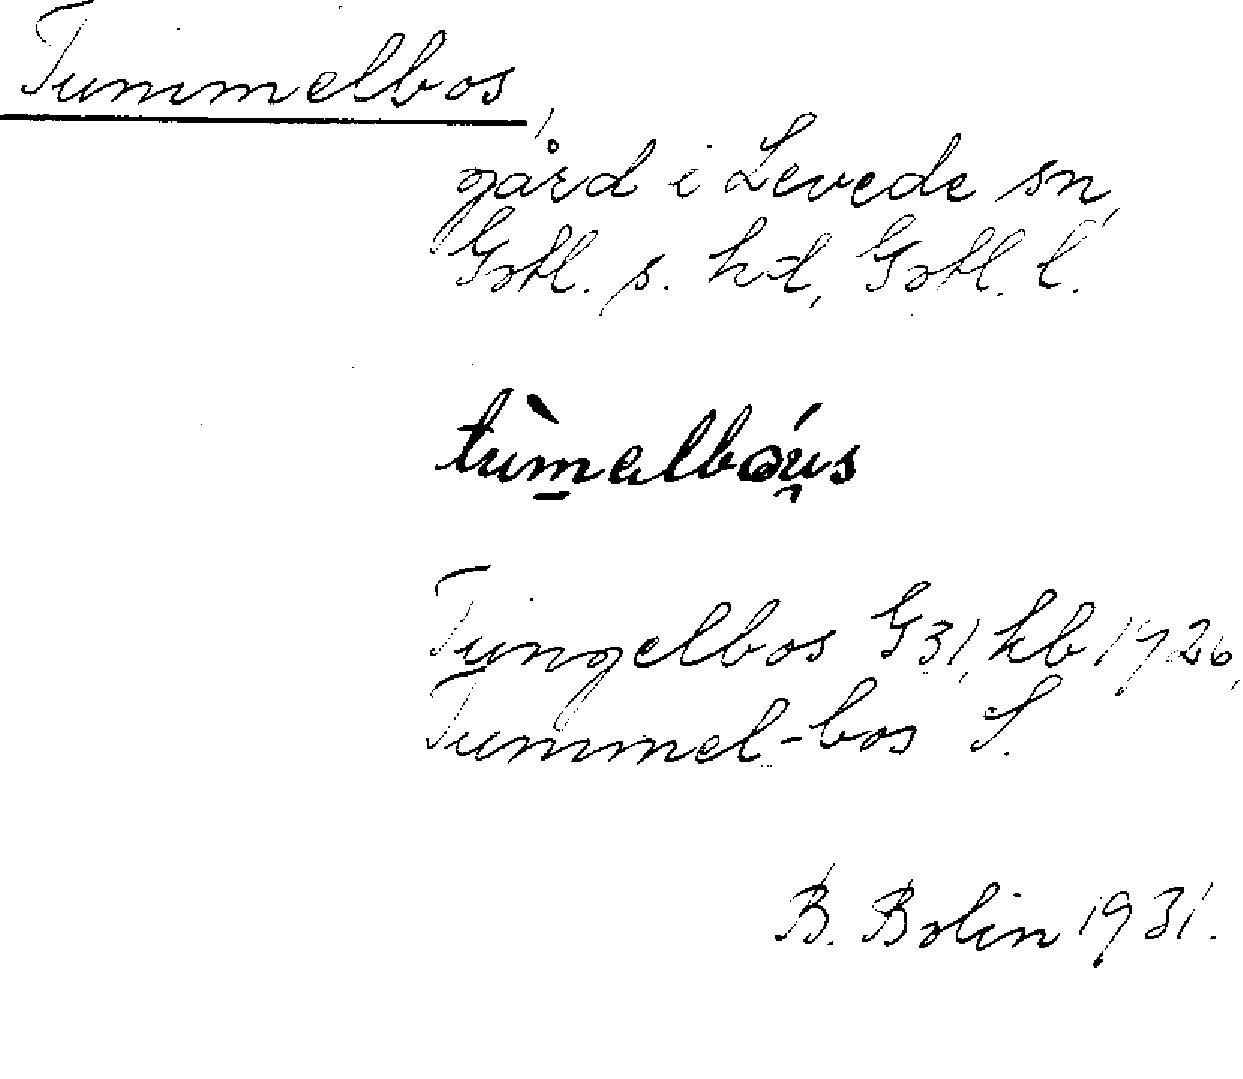 Tummelbos,
gård i Levede sn,
Gotl. s. hd, Gotl. l.
tùm̱albǝú̯s
Tungelbos G31, kb 1926,
Tummel-bos S.
B. Bolin 1931.